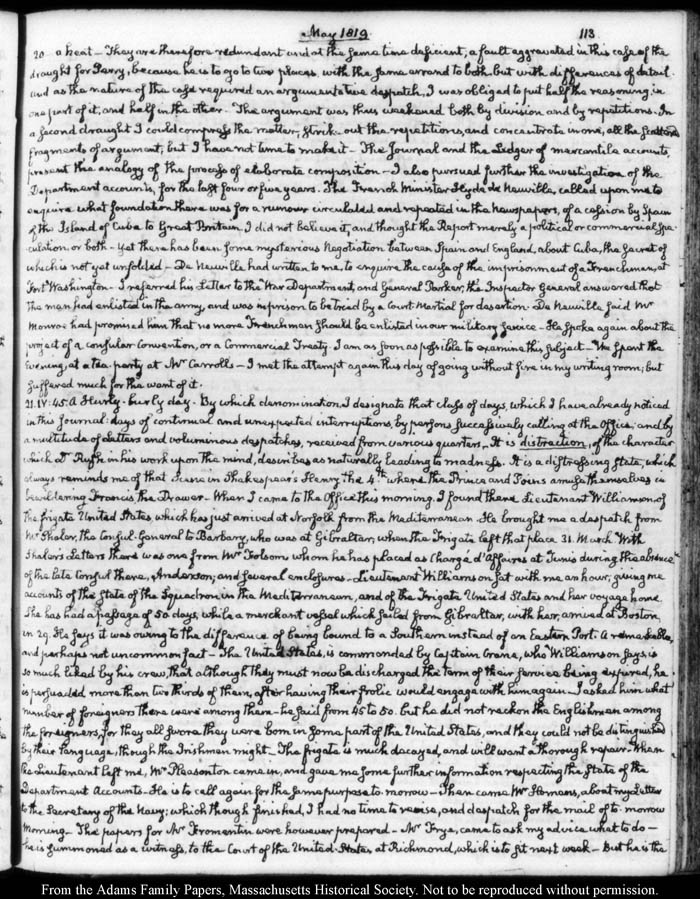 May 1819. 113
20 a heat — They are therefore redundant and at the same time deficient; a fault aggravated in this case of the
draught for Perry, because he is to go to two places, with the same errand to both but with differences of detail.
and as the nature of the case required an argumentative despatch, I was obliged to put half the reasoning in
one part of it, and half in the other. The argument was thus weakened both by division and by repetitions. In
a second draught I could compress the matter, strike out the repetitions, and concentrate in one, all the scattered
fragments of argument, but I have not time to make it — The Journal and the Ledger of mercantile accounts,
present the analogy of the process of elaborate composition — I also pursued further the investigation of the
Department accounts, for the last four or five years. The French Minister Hyde de Neuville, called upon me to
enquire what foundation there was for a rumour circulated and repeated in the newspapers, of a cession by Spain
of the Island of Cuba to Great Britain. I did not believe it, and thought the Report merely a political or commercial spe-
culation, or both — Yet there has been some mysterious Negotiation between Spain and England, about Cuba, the secret of
which is not yet unfolded — De Neuville had written to me, to enquire the cause of the imprisonment of a Frenchman, at
Fort Washington — I referred his Letter to the War Department, and General Parker, the Inspector General answered that
the man had enlisted in the army, and was in prison to be tried by a Court Martial for desertion. De Neuville said Mr
Monroe had promised him that no more Frenchmen should be enlisted in our military service — He spoke again about the
project of a consular Convention, or a Commercial Treaty. I am as soon as possible to examine this subject — We spent the
Evening, at a tea party at Mr Carroll's — I met the attempt again this day of going without fire in my writing room; but
suffered much for the want of it.
21. IV:45. A Hurly-burly day. By which denomination I designate that class of days, which I have already noticed
in this Journal: days of continual and unexpected interruptions, by persons successively calling at the Office; and by
a multitude of Letters and voluminous despatches, received from various quarters — It is distraction, of the character
which Dr Rush in his work upon the mind, describes as naturally leading to madness. It is a distressing state, which
always reminds me of that Scene in Shakespear's Henry the 4th where the Prince and Poins amuse themselves in
bewildering Francis, the Drawer — When I came to the Office this morning, I found there Lieutenant Williamson of
the frigate United States, which has just arrived at Norfolk from the Mediterranean. He brought me a despatch from
Mr Shaler, the Consul-General to Barbary, who was at Gibraltar, when the Frigate left that place 31. March. With
Shaler's Letters there was one from Mr Folsom whom he has placed as Chargé d'Affaires at Tunis during the absence
of the late Consul there, Anderson; and several enclosures. Lieutenant Williamson sat with me an hour, giving me
accounts of the State of the Squadron in the Mediterranean, and of the Frigate United States and her voyage home.
She has had a passage of 50 days, while a merchant vessel which sailed from Gibraltar, with her, arrived at Boston,
in 29. He says it was owing to the difference of being bound to a Southern instead of an Eastern Port. A remarkable,
and perhaps not uncommon fact — The United States, is commanded by Captain Crane, who Williamson says, is
so much liked by his crew, that although they must now be discharged the term of their service being expired, he
is persuaded more than two thirds of them, after having their frolic would engage with him again. I asked him what
number of foreigners there were among them — he said from 45 to 50. but he did not reckon the Englishmen among
the foreigners, for they all swore they were born in some part of the United States, and they could not be distinguished
by their language, though the Irishmen might — The frigate is much decayed, and will want a thorough repair. When
the Lieutenant left me, Mr Pleasonton came in, and gave me some further information respecting the State of the
Department Accounts — He is to call again for the same purpose to-morrow — Then came Mr about my Letter
to the Secretary of the Navy; which though finished, I had no time to revise, and despatch for the mail of to-morrow
morning — The papers for Mr Fromentin were however prepared — Mr Frye, came to ask my advice what to do —
he is summoned as a witness, to the Court of the United States at Richmond, which is to sit next week — But he is the
From the Adams Family Papers, Massachusetts Historical Society. Not to be reproduced without permission.